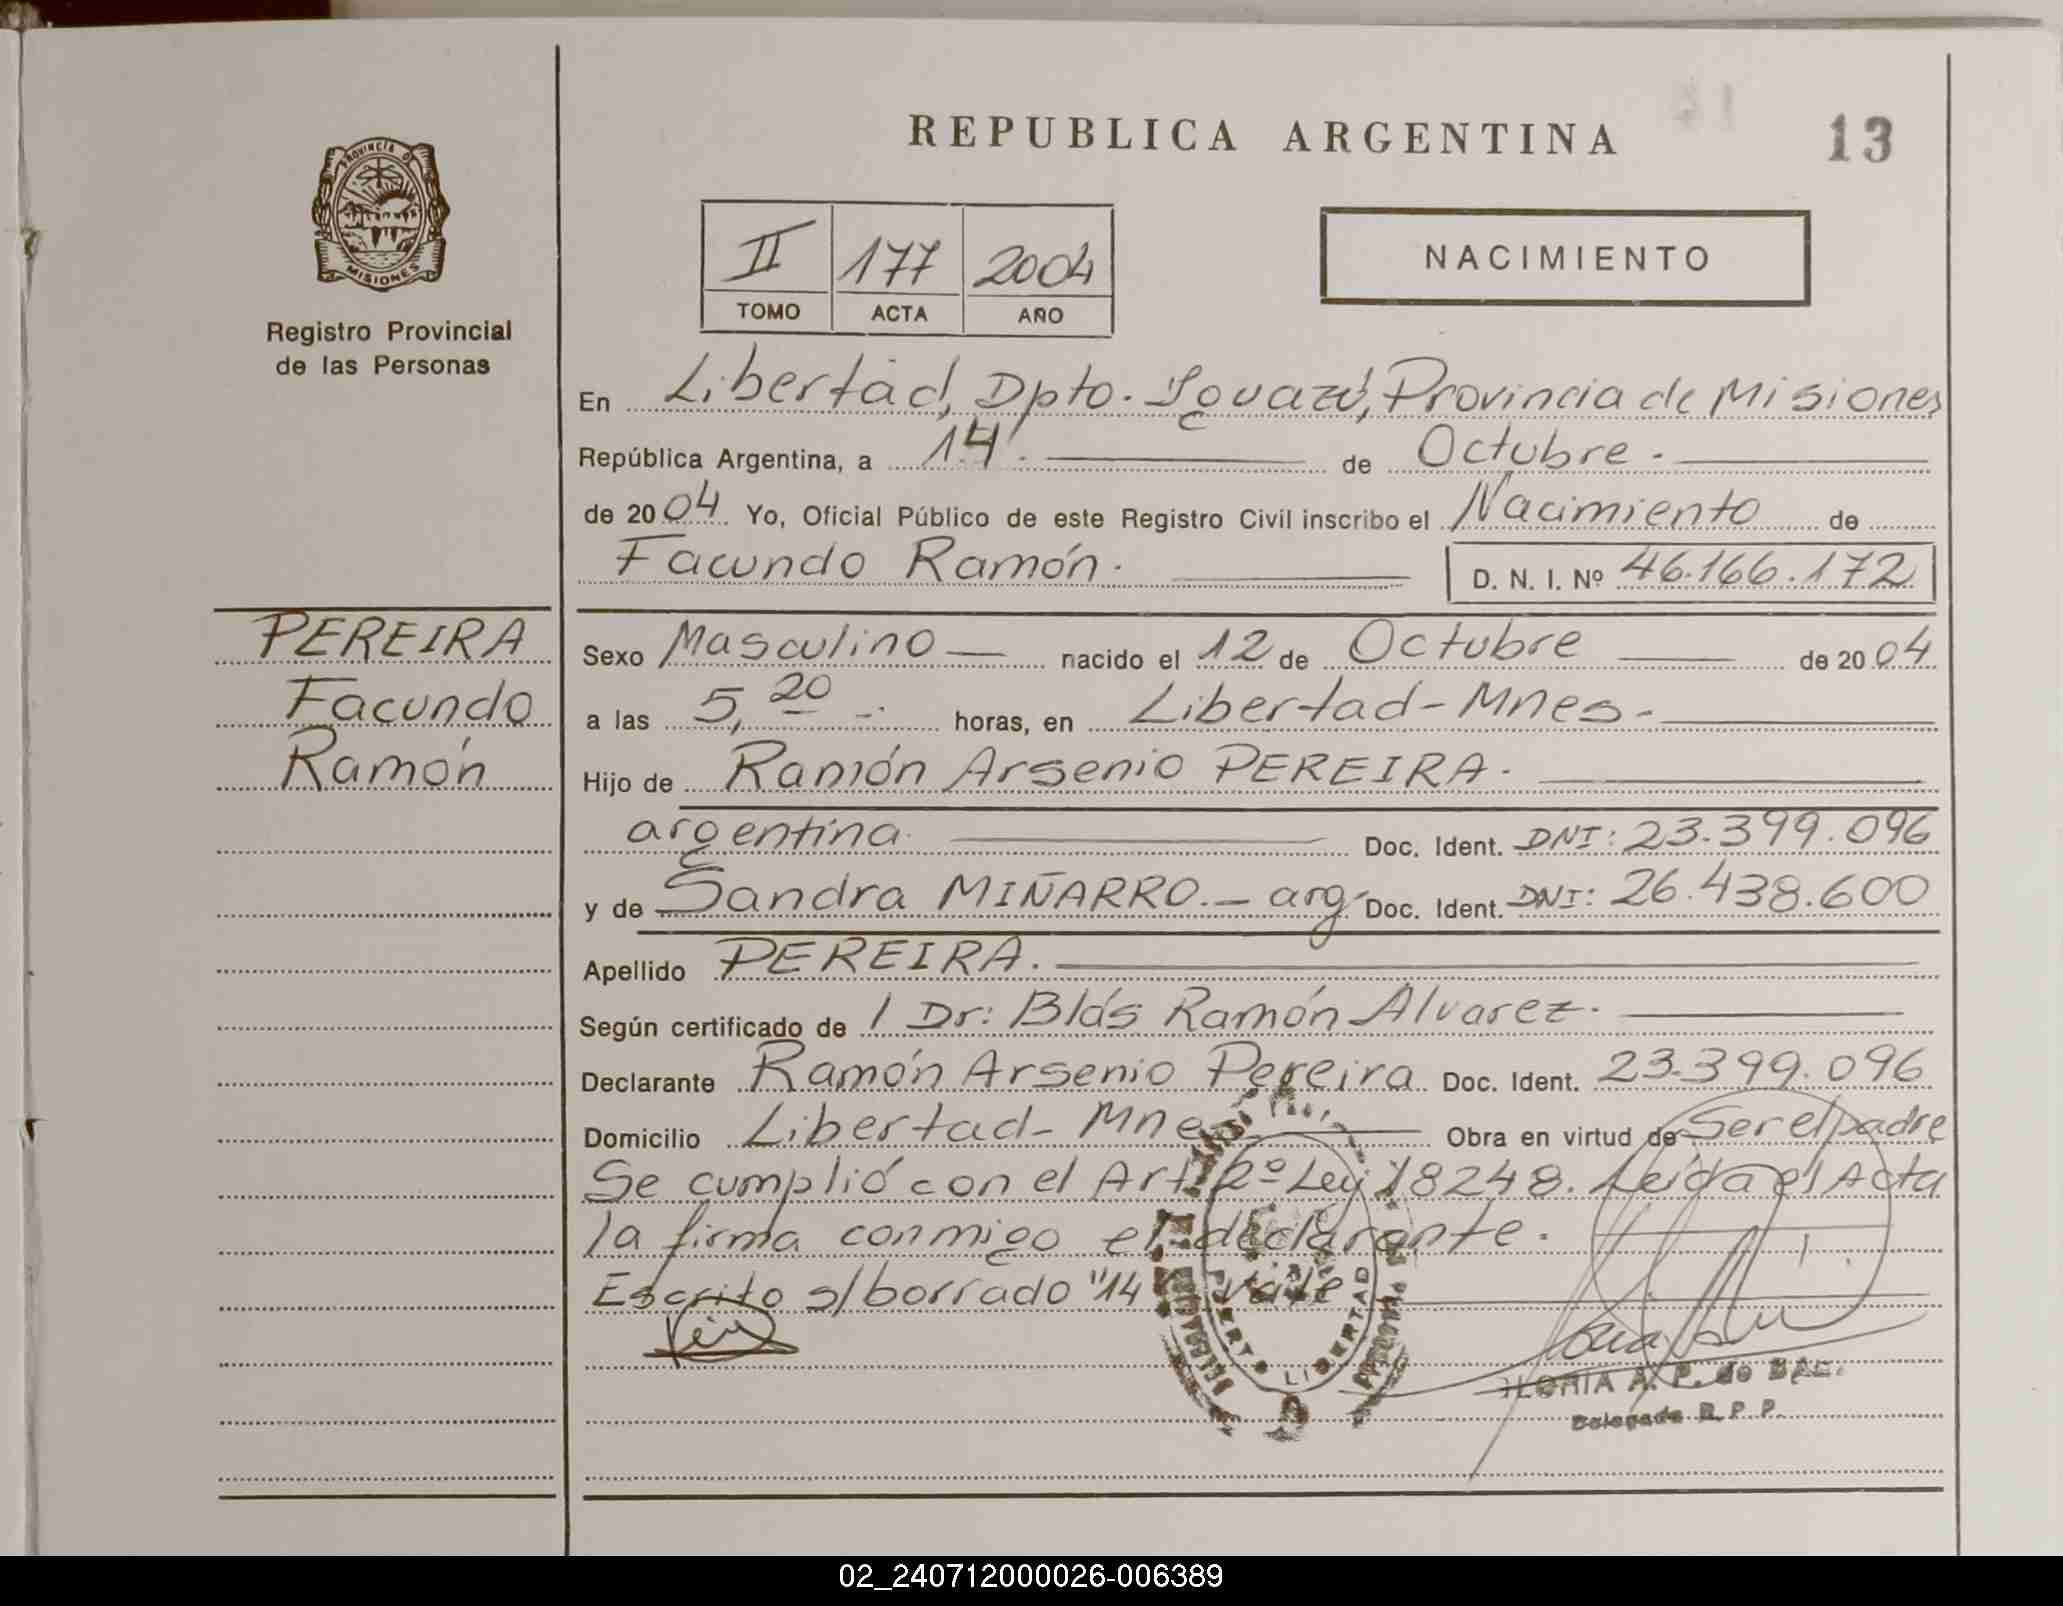 REPUBLICA ARGENTINA
13
PROVINCIA DE
MISIONES
Registro Provincial
de las Personas
II 177 2004
TOMO ACTA AÑO
NACIMIENTO
En Libertad, Dpto. Iguazú, Provincia de Misiones
República Argentina, a 14. de Octubre.
de 2004 Yo, Oficial Público de este Registro Civil inscribo el Nacimiento de
Facundo Ramón. D. N. I. Nº 46.166.172
PEREIRA
Facundo
Ramón
Sexo Masculino nacido el 12 de Octubre de 2004
a las 5,20 horas, en Libertad-Mnes.
Hijo de Ramón Arsenio PEREIRA.
argentina. Doc. Ident. DNI: 23.399.096
y de Sandra MIÑARRO.- arg. Doc. Ident. DNI: 26.438.600
Apellido PEREIRA.
Según certificado de / Dr: Blás Ramón Alvarez.
Declarante Ramón Arsenio Pereira Doc. Ident. 23.399.096
Domicilio Libertad- Mnes Obra en virtud de Ser el padre
Se cumplió con el Art. 2º Ley 18248. Leída el Acta
la firma conmigo el declarante.
Escrito s/borrado "14" Vale
PUERTO LIBERTAD
A. P. de
Delegada R. P. P.
02_240712000026-006389